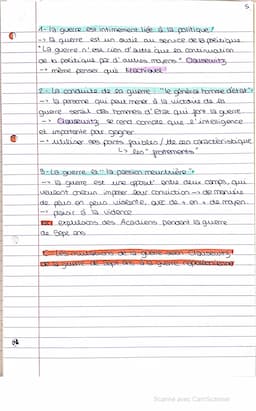 5
1- la guerre est intimement liée à la politique :
→ la guerre est un outil au service de la politique
"La guerre n'est rien d'autre que la continuation
de la politique par d'autres moyens" Clausewitz
→ même penser que Machiavel
2- La conduite de la guerre : "le général homme d'état" :
→ la personne qui peut mener à la victoire de la
guerre serait des hommes d'Etat qui font la guerre
→ Clausewitz se rend compte que l'intelligence
est importante pour gagner
→ utiliser ses points faibles / de ses caractéristiques
↳ les "frottements"
3- La guerre et "la passion meurtrière" :
→ la guerre est une oppos° entre deux camps, qui
veulent chacun imposer leur conviction → de manière
de plus en plus violente, avec de + en + de moyen
→ plaisir à la violence
expulsions des Acadiens pendant la guerre
de Sept ans
de la guerre selon Clausewitz
de la guerre de Sept ans à la guerre napoléonienne
Scanné avec CamScanner